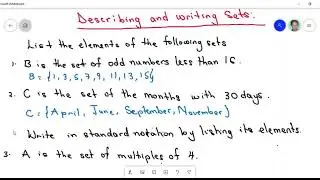 Describing and writing Sets:
List the elements of the following sets
1. B is the set of odd numbers less than 16.
B = {1, 3, 5, 7, 9, 11, 13, 15}
2. C is the set of the months with 30 days.
C = {April, June, September, November}
Write in standard notation by listing its elements.
3. A is the set of multiples of 4.